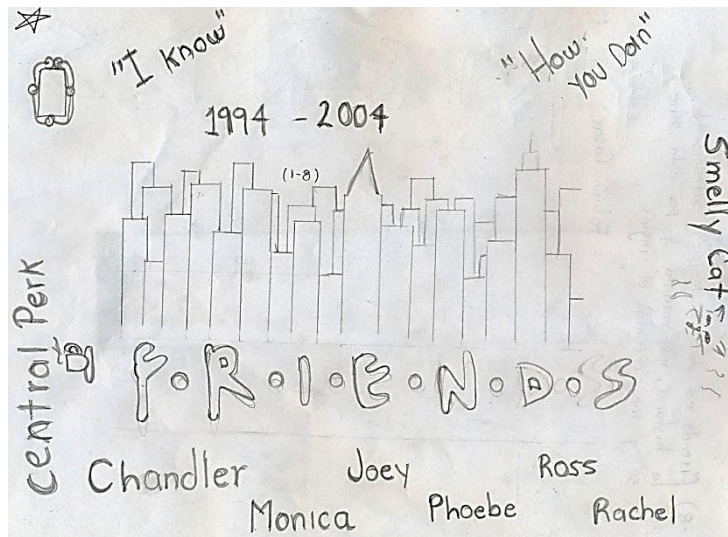 "I know"
"How
you Doin"
1994 - 2004
(1-8)
Smelly Cat
Central Perk
F•R•I•E•N•D•S
Chandler
Joey
Ross
Monica
Phoebe
Rachel